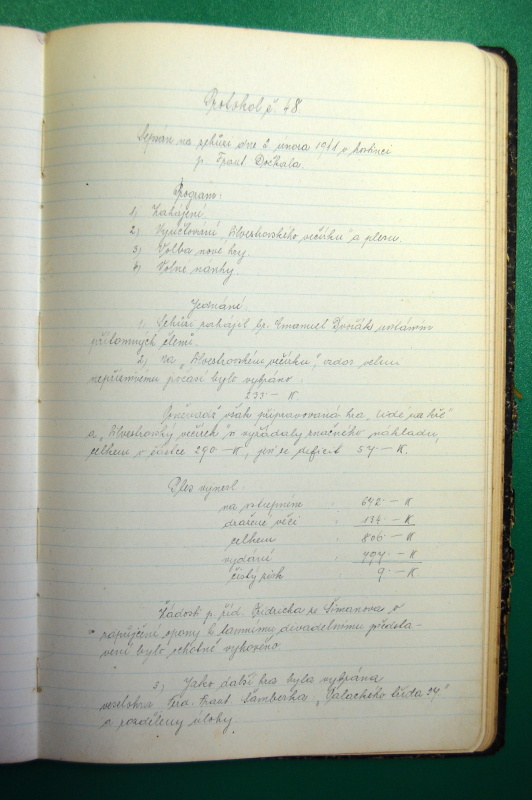 Protokol č. 48.
sepsán na schůzi dne 2. února 19 v hostinci
p. Frant. Dockala.
Program:
1) Zahájení.
2) Vyúčtování „Silvestrovského večírku" a plesu.
3) Volba nové hry.
4) Volné návrhy.
Jednání:
1) Schůzi zahájil br. Emanuel Dvořák
přítomných členů.
2) Na „Silvestrovském večírku", velmi
nepříznivému počasí bylo vybráno
233·– K.
Poněvadž však připravovaná hra
a „Silvestrovský večírek" vyžádaly značného nákladu,
celkem v částce 290·– K, jeví se deficit 57·– K.
Ples vynesl:
na vstupném : 672·– K
dražené věci : 134·– K
celkem : 806·– K
vydání : 797·– K
čistý zisk : 9·– K
Žádosti p. říd. Fridricha ze Šimanova o
zapůjčení opony k tamnímu divadelnímu předsta-
vení bylo ochotně vyhověno.
3) Jako další hra byla vybrána
veselohra Ferd. Frant. Šamberka „Palackého třída 27"
a rozděleny úlohy.